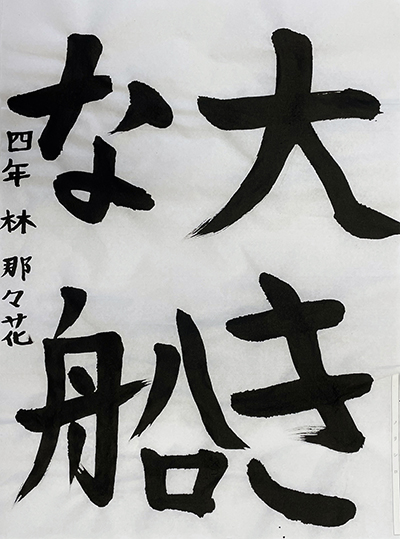 大き
な船
四年 林 那々花